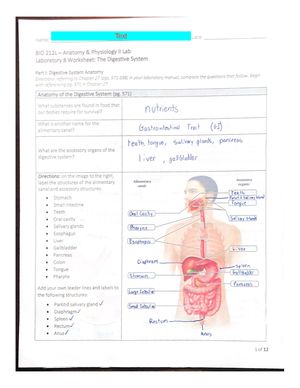 Name: Text Date:
BIO 212L – Anatomy & Physiology II Lab
Laboratory 8 Worksheet: The Digestive System
Part I: Digestive System Anatomy
Anatomy of the Digestive System (pg. 571)
What substances are found in food that
our bodies require for survival?
nutrients
What is another name for the
alimentary canal?
Gastrointestinal Tract (GI)
What are the accessory organs of the
digestive system?
teeth, tongue, salivary glands, pancreas
liver, gallbladder
Directions: on the image to the right,
label the structures of the alimentary
canal and accessory structures.
Stomach
Small intestine
Teeth
Oral cavity
Salivary glands
Esophagus
Liver
Gallbladder
Pancreas
Colon
Tongue
Pharynx
Add your own leader lines and labels to
the following structures:
Parotid salivary gland
Diaphragm
Spleen
Rectum
Anus
Alimentary
canal
Accessory
organs
Teeth
Parotid Salivary Gland
Tongue
Oral Cavity
Salivary Glands
Pharynx
Esophagus
Liver
Diaphragm
Spleen
Stomach
Gallbladder
Pancreas
Large Intestine
Small Intestine
Rectum
Anus
1 of 12